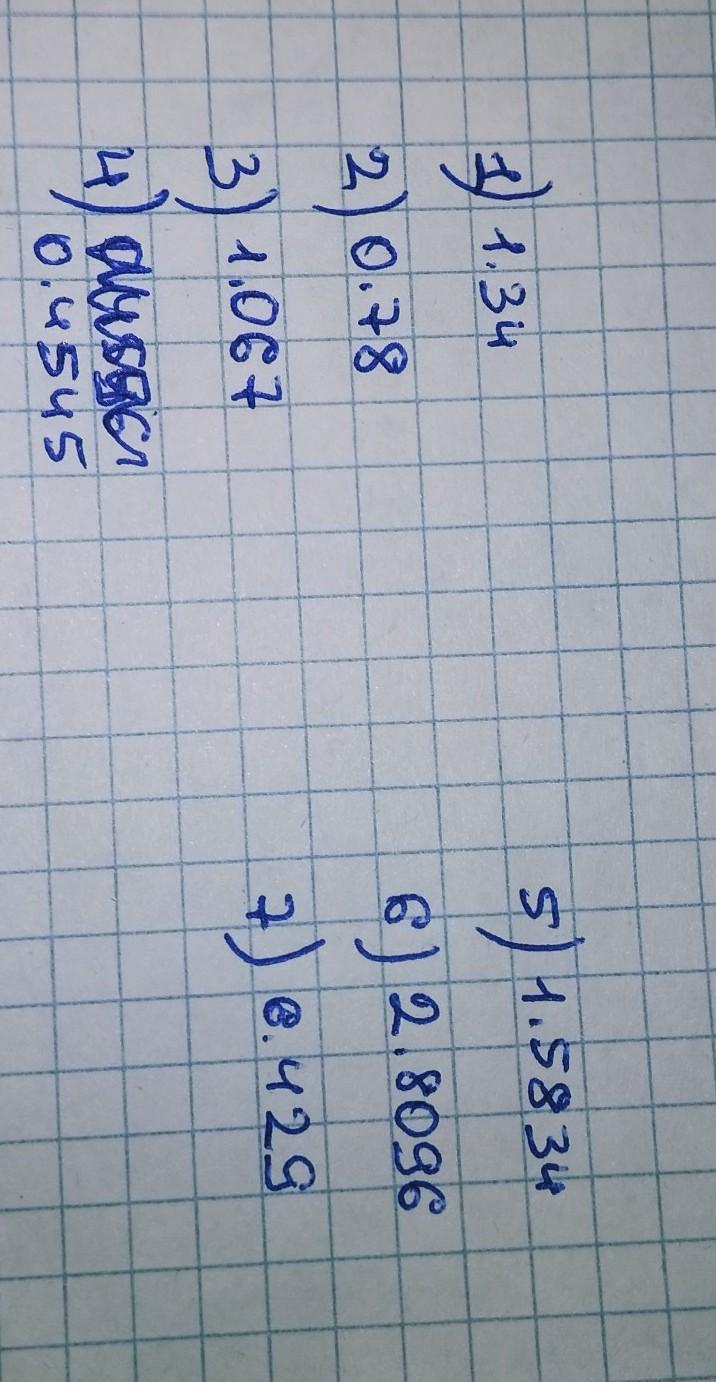 1) 1.34
2) 0.78
3) 1.067
4)
0.4545
5) 1.5834
6) 2.8096
7) 0.429